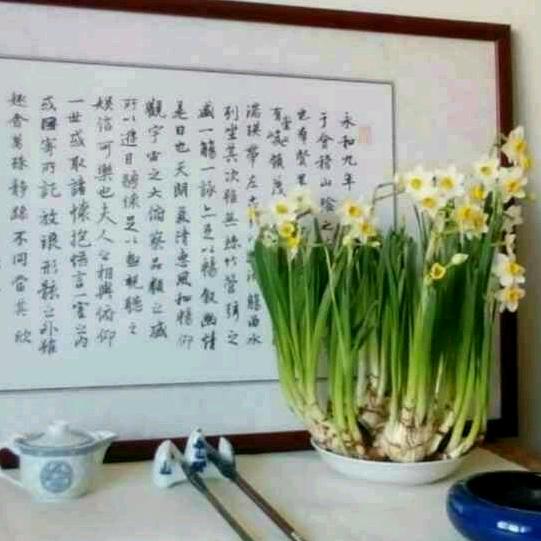 永和九年
于會稽山陰之
也群賢畢
有崇峻領茂
湍暎帶左觴曲水
列坐其次雖無絲竹管弦之
盛一觴一詠亦足以暢敘幽情
是日也天朗氣清惠風和暢仰
觀宇宙之大俯察品類之盛
所以遊目騁懷足以極視聽之
娛信可樂也夫人之相與俯仰
一世或取諸懷抱悟言一室之內
或因寄所託放浪形骸之外雖
趣舍萬殊靜躁不同當其欣